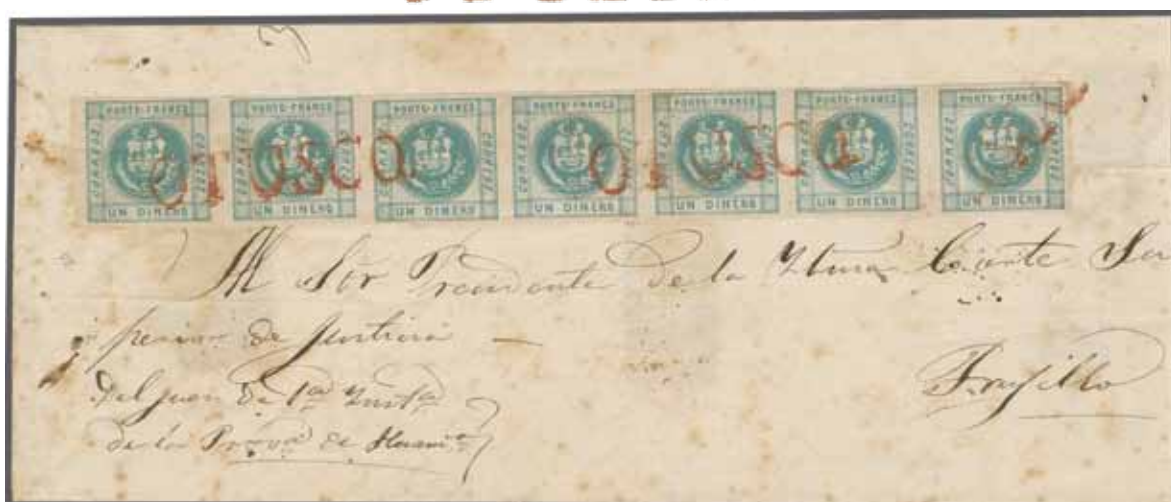 PORTO FRANCO CORREOS UN DINERO
PORTO FRANCO CORREOS UN DINERO
PORTO FRANCO CORREOS UN DINERO
PORTO FRANCO CORREOS UN DINERO
PORTO FRANCO CORREOS UN DINERO
PORTO FRANCO CORREOS UN DINERO
PORTO FRANCO CORREOS UN DINERO
OTUSCO OTUSCO
Al Sor Presidente de la Corte Su
perior de Justicia —
Del Juez de 1a
de la
Trujillo